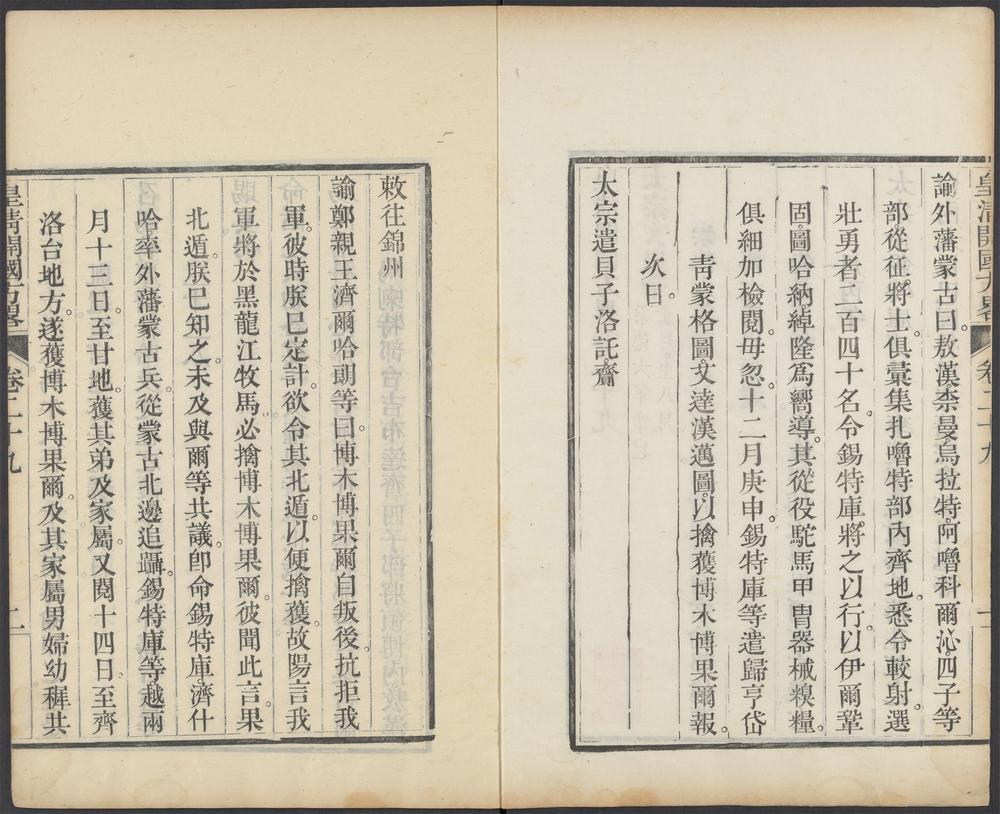 諭外藩蒙古曰。敖漢柰曼烏拉特阿嚕科爾沁四子等
部從征將士。俱彚集扎嚕特部內齊地。悉令較射選
壯勇者二百四十名。令錫特庫將之以行。以伊爾鞏
固圖哈納綽隆爲嚮導。其從役駝馬甲冑器械糗糧。
俱細加檢閱。毋忽。十二月庚申。錫特庫等遣歸亨岱
靑蒙格圖。文達漢邁圖。以擒獲博木博果爾報。
次日。
太宗遣貝子洛託齎
皇淸開國方畧
卷二十九
敕往錦州
諭鄭親王濟爾哈朗等曰。博木博果爾自叛後。抗拒我
軍。彼時朕已定計。欲令其北遁。以便擒獲。故陽言我
軍將於黑龍江牧馬。必擒博木博果爾。彼聞此言。果
北遁。朕已知之。未及與爾等共議。卽命錫特庫濟什
哈率外藩蒙古兵。從蒙古北邊追躡。錫特庫等。越兩
月十三日。至甘地。獲其弟及家屬。又閱十四日。至齊
洛台地方。遂獲博木博果爾。及其家屬男婦幼穉共
皇淸開國方畧
卷二十九
二